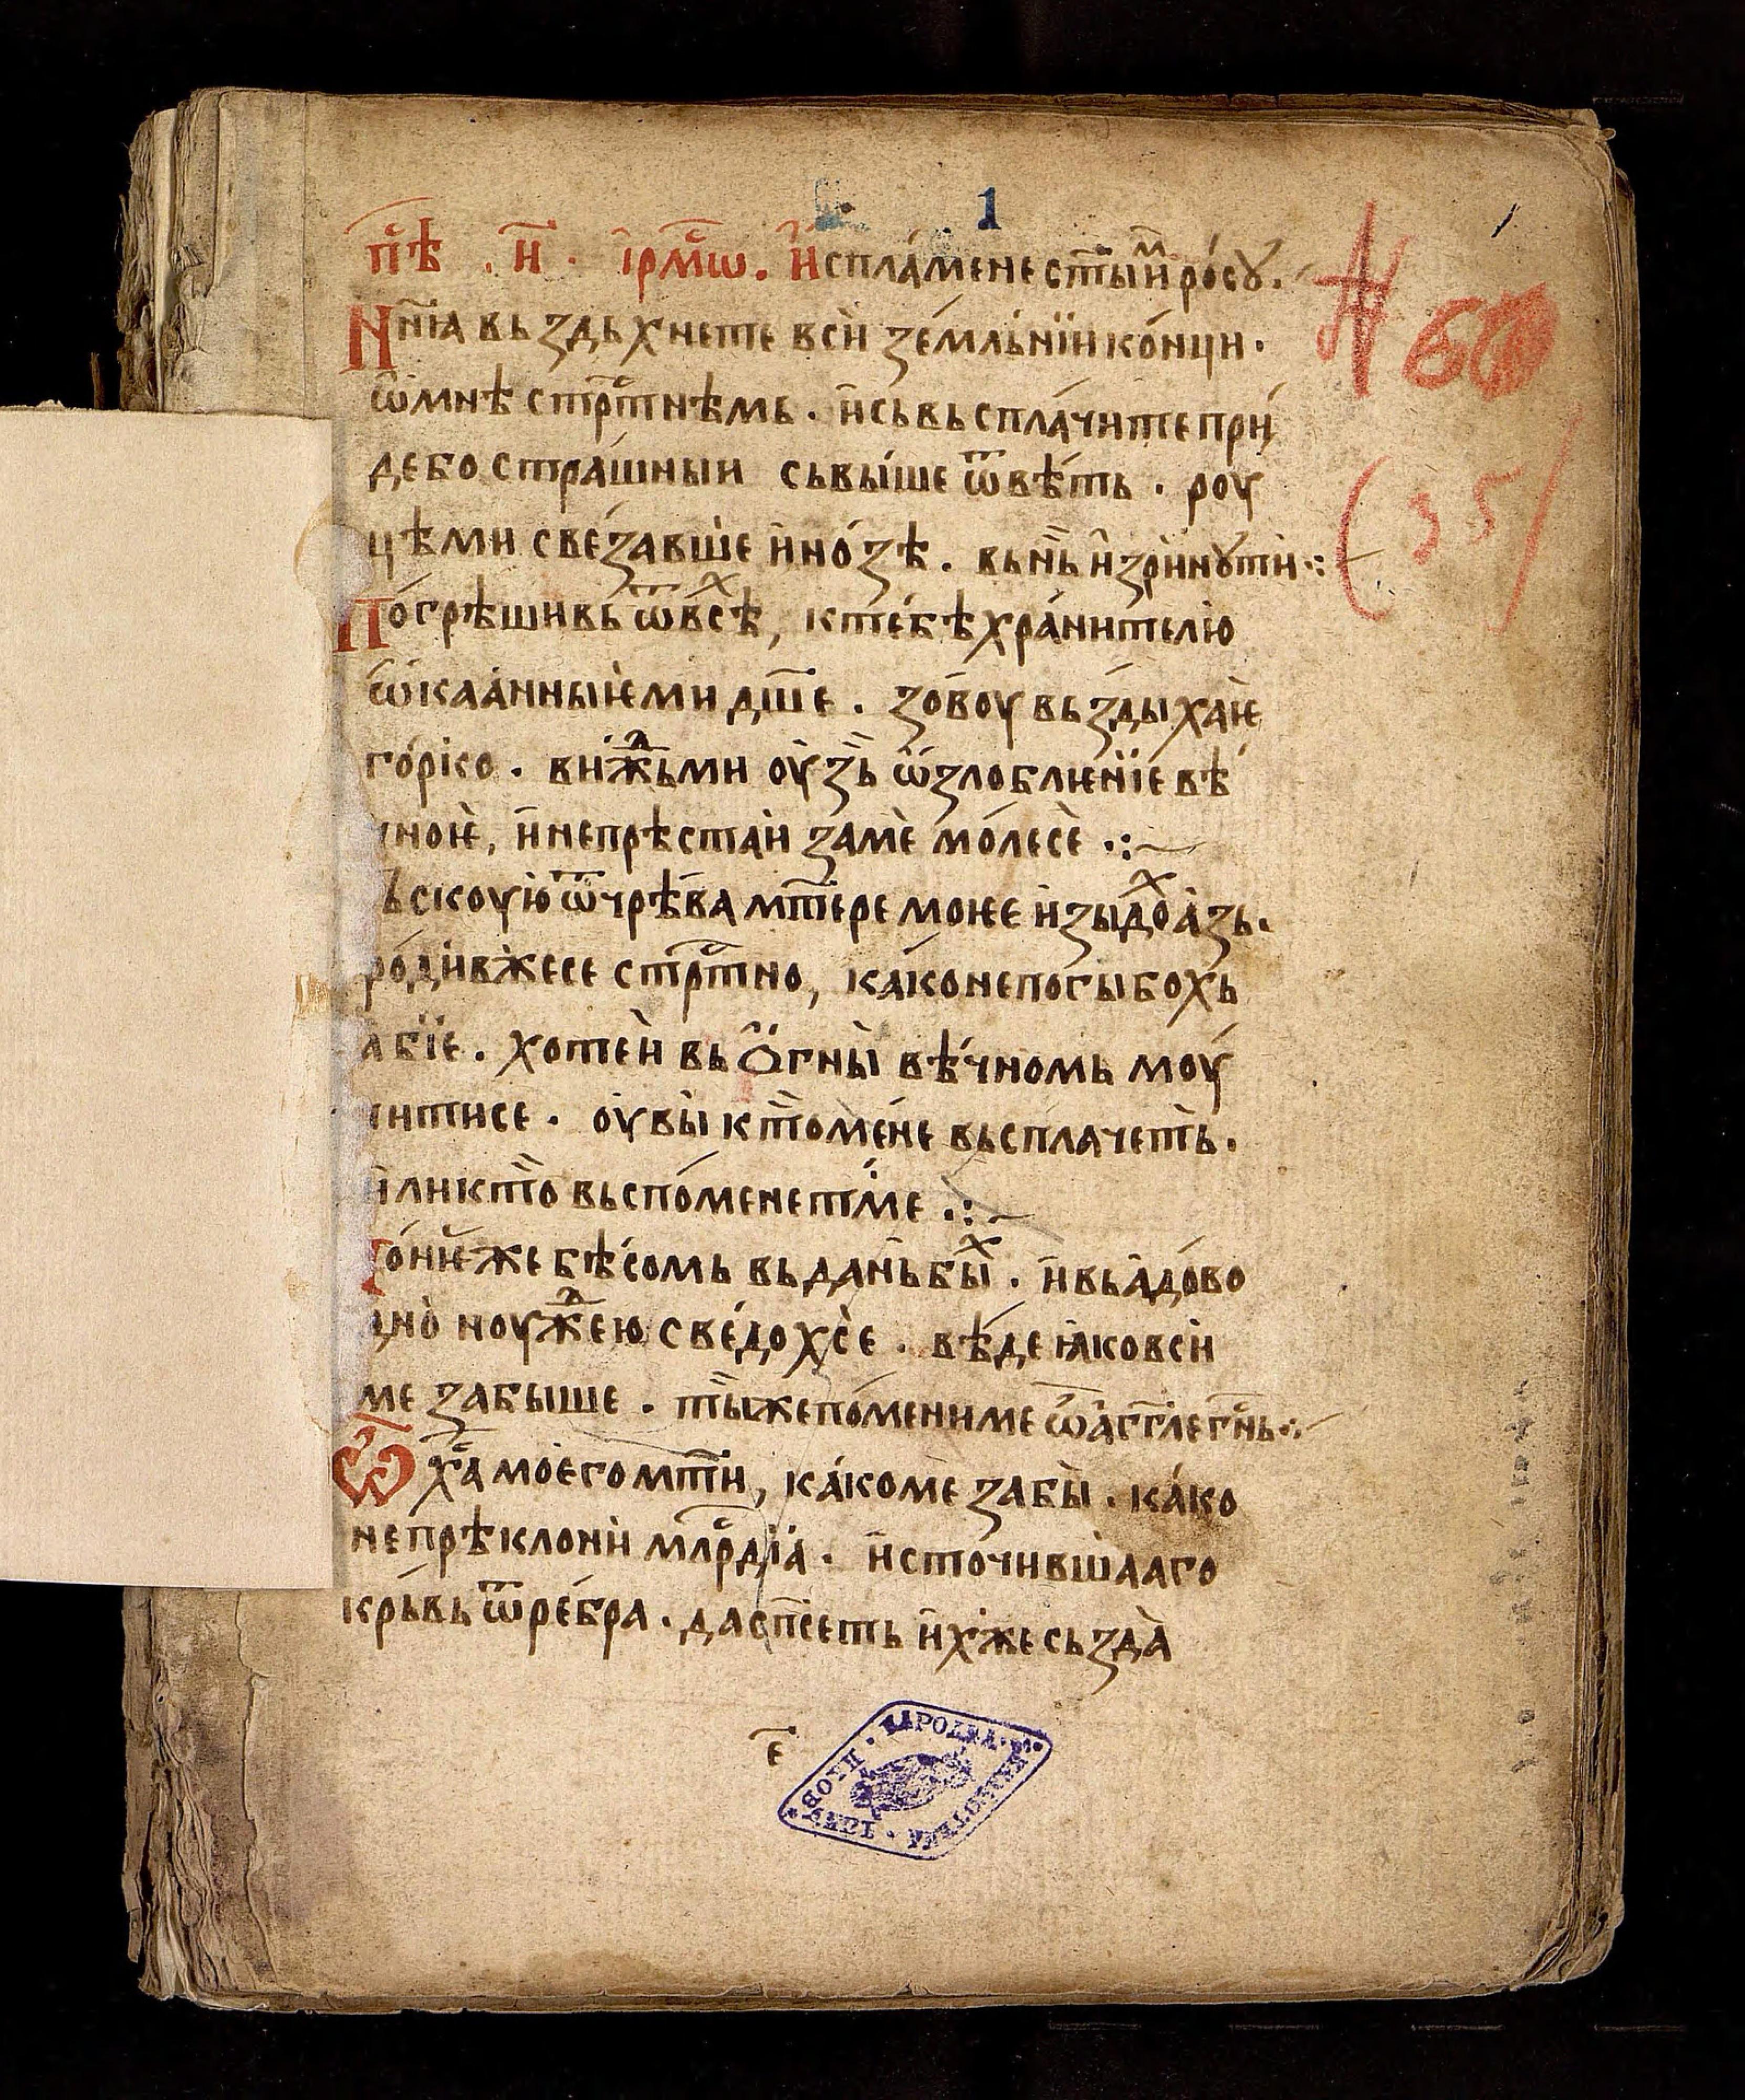 1
1
п̑ѣ . н҃ . їрмⷭ҇ѡ . И҆спла́мене ст҃ыⷨи ро́сꙋ .
Nн҃ꙗ вь здь́хнете всѝ зе́мльні́и ко́нци .
ѡ҆мнѣ̀ стрⷭ҇тнѣмь . и҆сьвьспла́чите при́
дебо стра́шныи сьвы́ше ѿвѣ́ть . роу
цѣми све́завше и҆но́зѣ . вьнь̀ и҆зри́нꙋти ⁘
По́грѣшивь ѿвсѣⷯ, кте́бѣ хра́нителю
ѡ҆каа́нныѥ ми дш҃е . зо́воу вьзды́хаѥ
го́рко . вижⷣьми оу҆зь̀ ѡ҆злоблѥ́нїе вѣ́
чноѥ, и҆непрѣста́и заме̏ мо́лесе ⁘
ьскоую ѿчрѣ́ва мт҃ере моѥе и҆зыдоⷯ а́зь .
ро́дивжесе стрⷭ҇тно, ка́ко непогы́бохь
а҆бїе . хоте́и вь ѻ҆гны̀ вѣ́чномь моу́
читисе . оу҆вы̀ кто̀ ме́не вьспла́четь .
и҆ли кто̀ вьспо́менет ме ⁘
о́ниже бѣ́сомь вьда́нь быⷯ . и҆вь а҆до́во
дно̀ ноужⷣею све́дохсе . вѣ́де ꙗко всѝ
ме забыше . ты̀же по́мени ме ѡ҆агг҃ле гн҃ь ⁘
Ѡ҆ ха҃ мо́его мт҃и, ка́ко ме̏ забы̀ . ка́ко
непрѣклони́ млрⷭ҇дїа . и҆сто́чившааго
кры́вь ѿре́бра . да сп҃сеть и҆хже сьзда̀
е҃
НАРОДНА БИБЛИОТЕКА ПЛОВДИВ